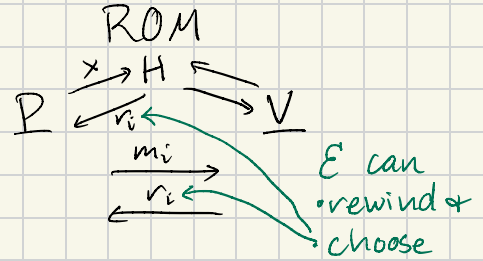 ROM
x H
P V
ri
mi
ri
ℰ can
• rewind &
• choose